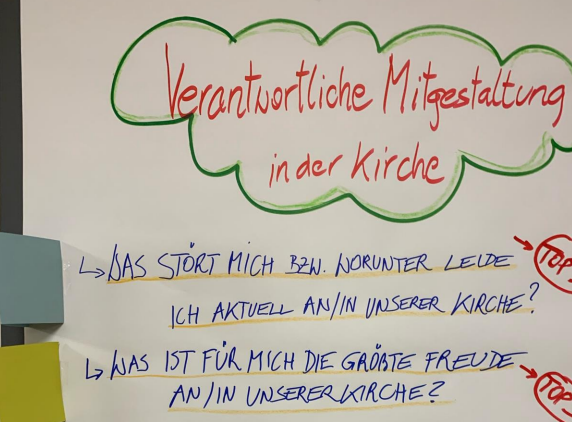 Verantwortliche Mitgestaltung
in der Kirche
↳ WAS STÖRT MICH BZW. WORUNTER LEIDE → TOP
ICH AKTUELL AN/IN UNSERER KIRCHE?
↳ WAS IST FÜR MICH DIE GRÖßTE FREUDE → TOP
AN/IN UNSERER KIRCHE?